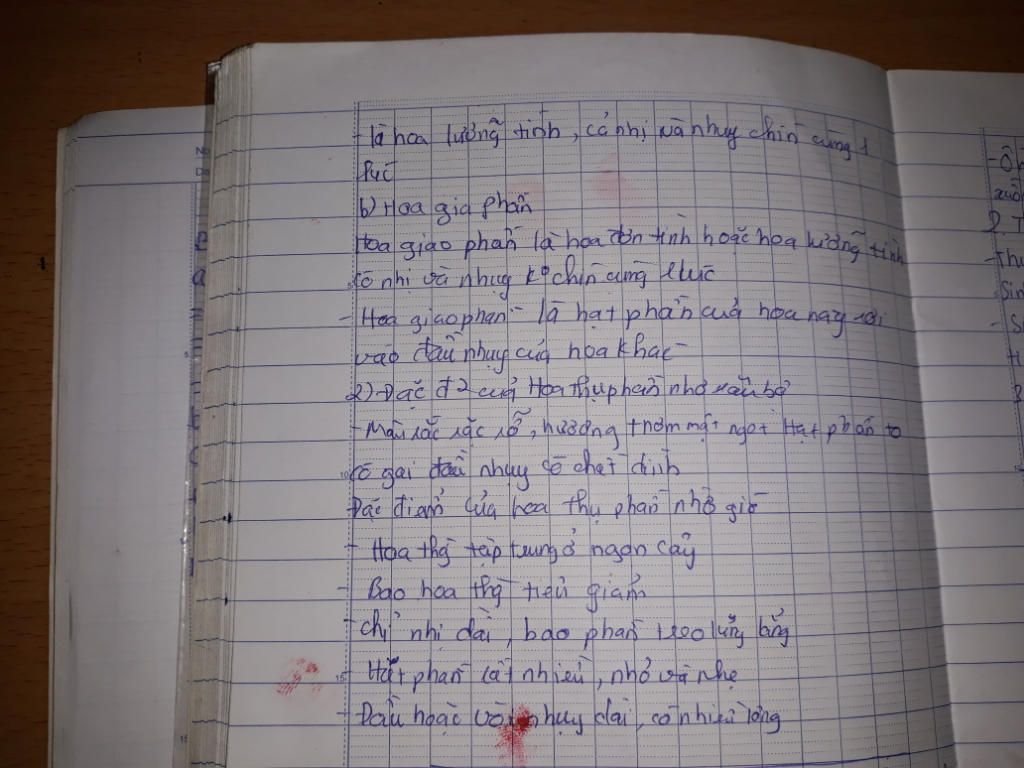 - là hoa lưỡng tính, có nhị và nhụy chín cùng 1
lúc
b) Hoa gia phấn
Hoa giao phấn là hoa đơn tính hoặc hoa lưỡng tính
có nhị và nhụy kº chín cùng 1 lúc
- Hoa giao phấn là hạt phấn của hoa này rơi
vào đầu nhụy của hoa khác
2) Đặc đ2 của Hoa thụ phấn nhờ sâu bọ
- Màu sắc sặc sỡ, hương thơm mật ngọt Hạt phấn to
có gai đầu nhụy có chất dính
Đặc điểm của hoa thụ phấn nhờ gió
- Hoa thg tập trung ở ngọn cây
- Bao hoa thg tiêu giảm
- chỉ nhị dài, bao phấn treo lủng lẳng
- Hạt phấn rất nhiều, nhỏ và nhẹ
- Đầu hoặc vòi nhụy dài, có nhiều lông
- Ô
xuô
2. T
- Thụ
Sin
- S
H